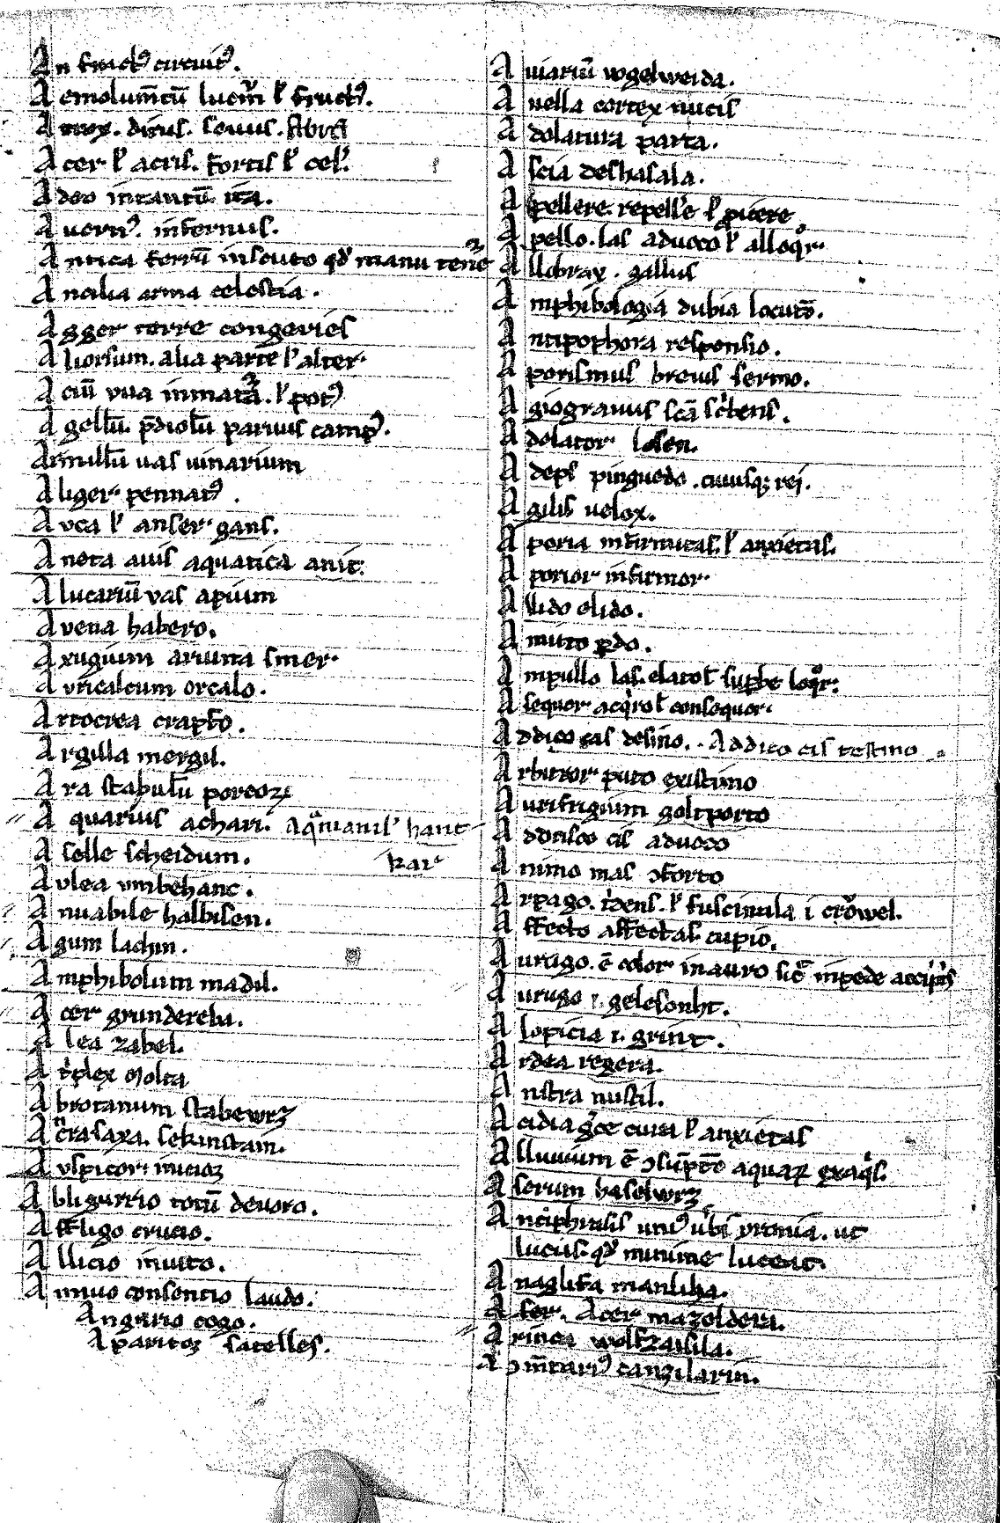 An fractꝰ circuitꝰ.
A emolum̄tū lucrū ł fructꝰ.
A trox. dirus. seuus.
A cer ł acris. fortis ł celꝰ.
A deo intantū. ita.
A uernꝰ. infernus.
A ntica ferrū inscuto qď manu tenet̄
A ncilia arma celestia.
A gger terre congeries
A liorsum. alia parte ł alter
A ciū vua inmatā. ł potꝰ
A gellū. p̄diolū paruus campꝰ.
Armillū uas uinarium
A liger pennatꝰ.
A uca ł anser gans.
A neta auis aquatica anit.
A lucariū vas apium
A vena habero.
A xugium aruina smer
A vricalcum orcalo.
A rtocrea crapfo.
A rgilla mergil.
A ra stabulū porcoꝝ
A quarius achari. Aq̄manil' hant
kar
A selle scheidum.
A ulea vmbehanc.
A nuabile halbisen.
A gum lachin.
A mphibolum madil.
A cer grundereba.
A lea zabel.
A t'plex Molta
A brotanum stabewrz
A
A uspicor. inicior
A bligurrio totū deuoro.
A ffligo crucio.
A llicio inuito.
A nnuo consentio laudo.
A ngario cogo.
A paritor satelles.
A uiariū vogelweida.
A uella cortex nucis
A dolatura parta.
A scia deshasala.
A spellere. repellere ł ꝓicere
A pello. las aduoco ł alloqr
A llobrax. gallus
A mphibologia dubia locutō.
A ntipophora responsio.
A porismus breuis sermo.
A giograuus scā sc'bens.
A dolator losen.
A deps pinguedo. cuiusqꝫ rei.
A gilis uelox.
A poria infirmitas. ł anxietas.
A porior infirmor
A llido elido.
A mitto ꝑdo.
A mpullo las. elatoł supbe loqr.
A sequor acq'roł consequor
A ddico cas desino.. Addico cis testino
A rbitror puto existimo
A urifrigium goltporto
A ddisco cis aduoco
A nimo mas ɔforto
A rpago. t'dens. ł fuscinula i crowel.
A ffecto affectas. cupio.
A urugo. ē color in auro sic̄ inpede accip'is
A urugo .i. gelesouht.
A lopicia .i. grint.
A rdea regera.
A nstra nustil.
A cidia g̃ce cura ł anxietas
A lluuium ē ɔsūptō aquaꝝ exaq's.
A serum haselwrz
A ntiphrasis unꝰ u'bi yronia. ut
lucus. qď minime luceat.
A naglifa manliha.
A ser. Acer mazoldera.
A rinca wolfzaisila.
A ɔm̄tariꝰ canzilarin.